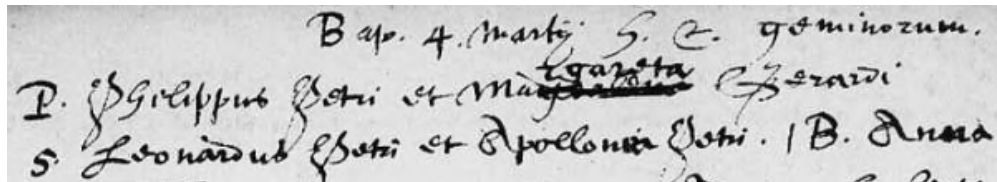 Bap. 4. Martij h. C. geminorum.
P. Philippus Petri et Margareta Gerardi
S. Leonardus Petri et Apollonia Petri. | B. Anna